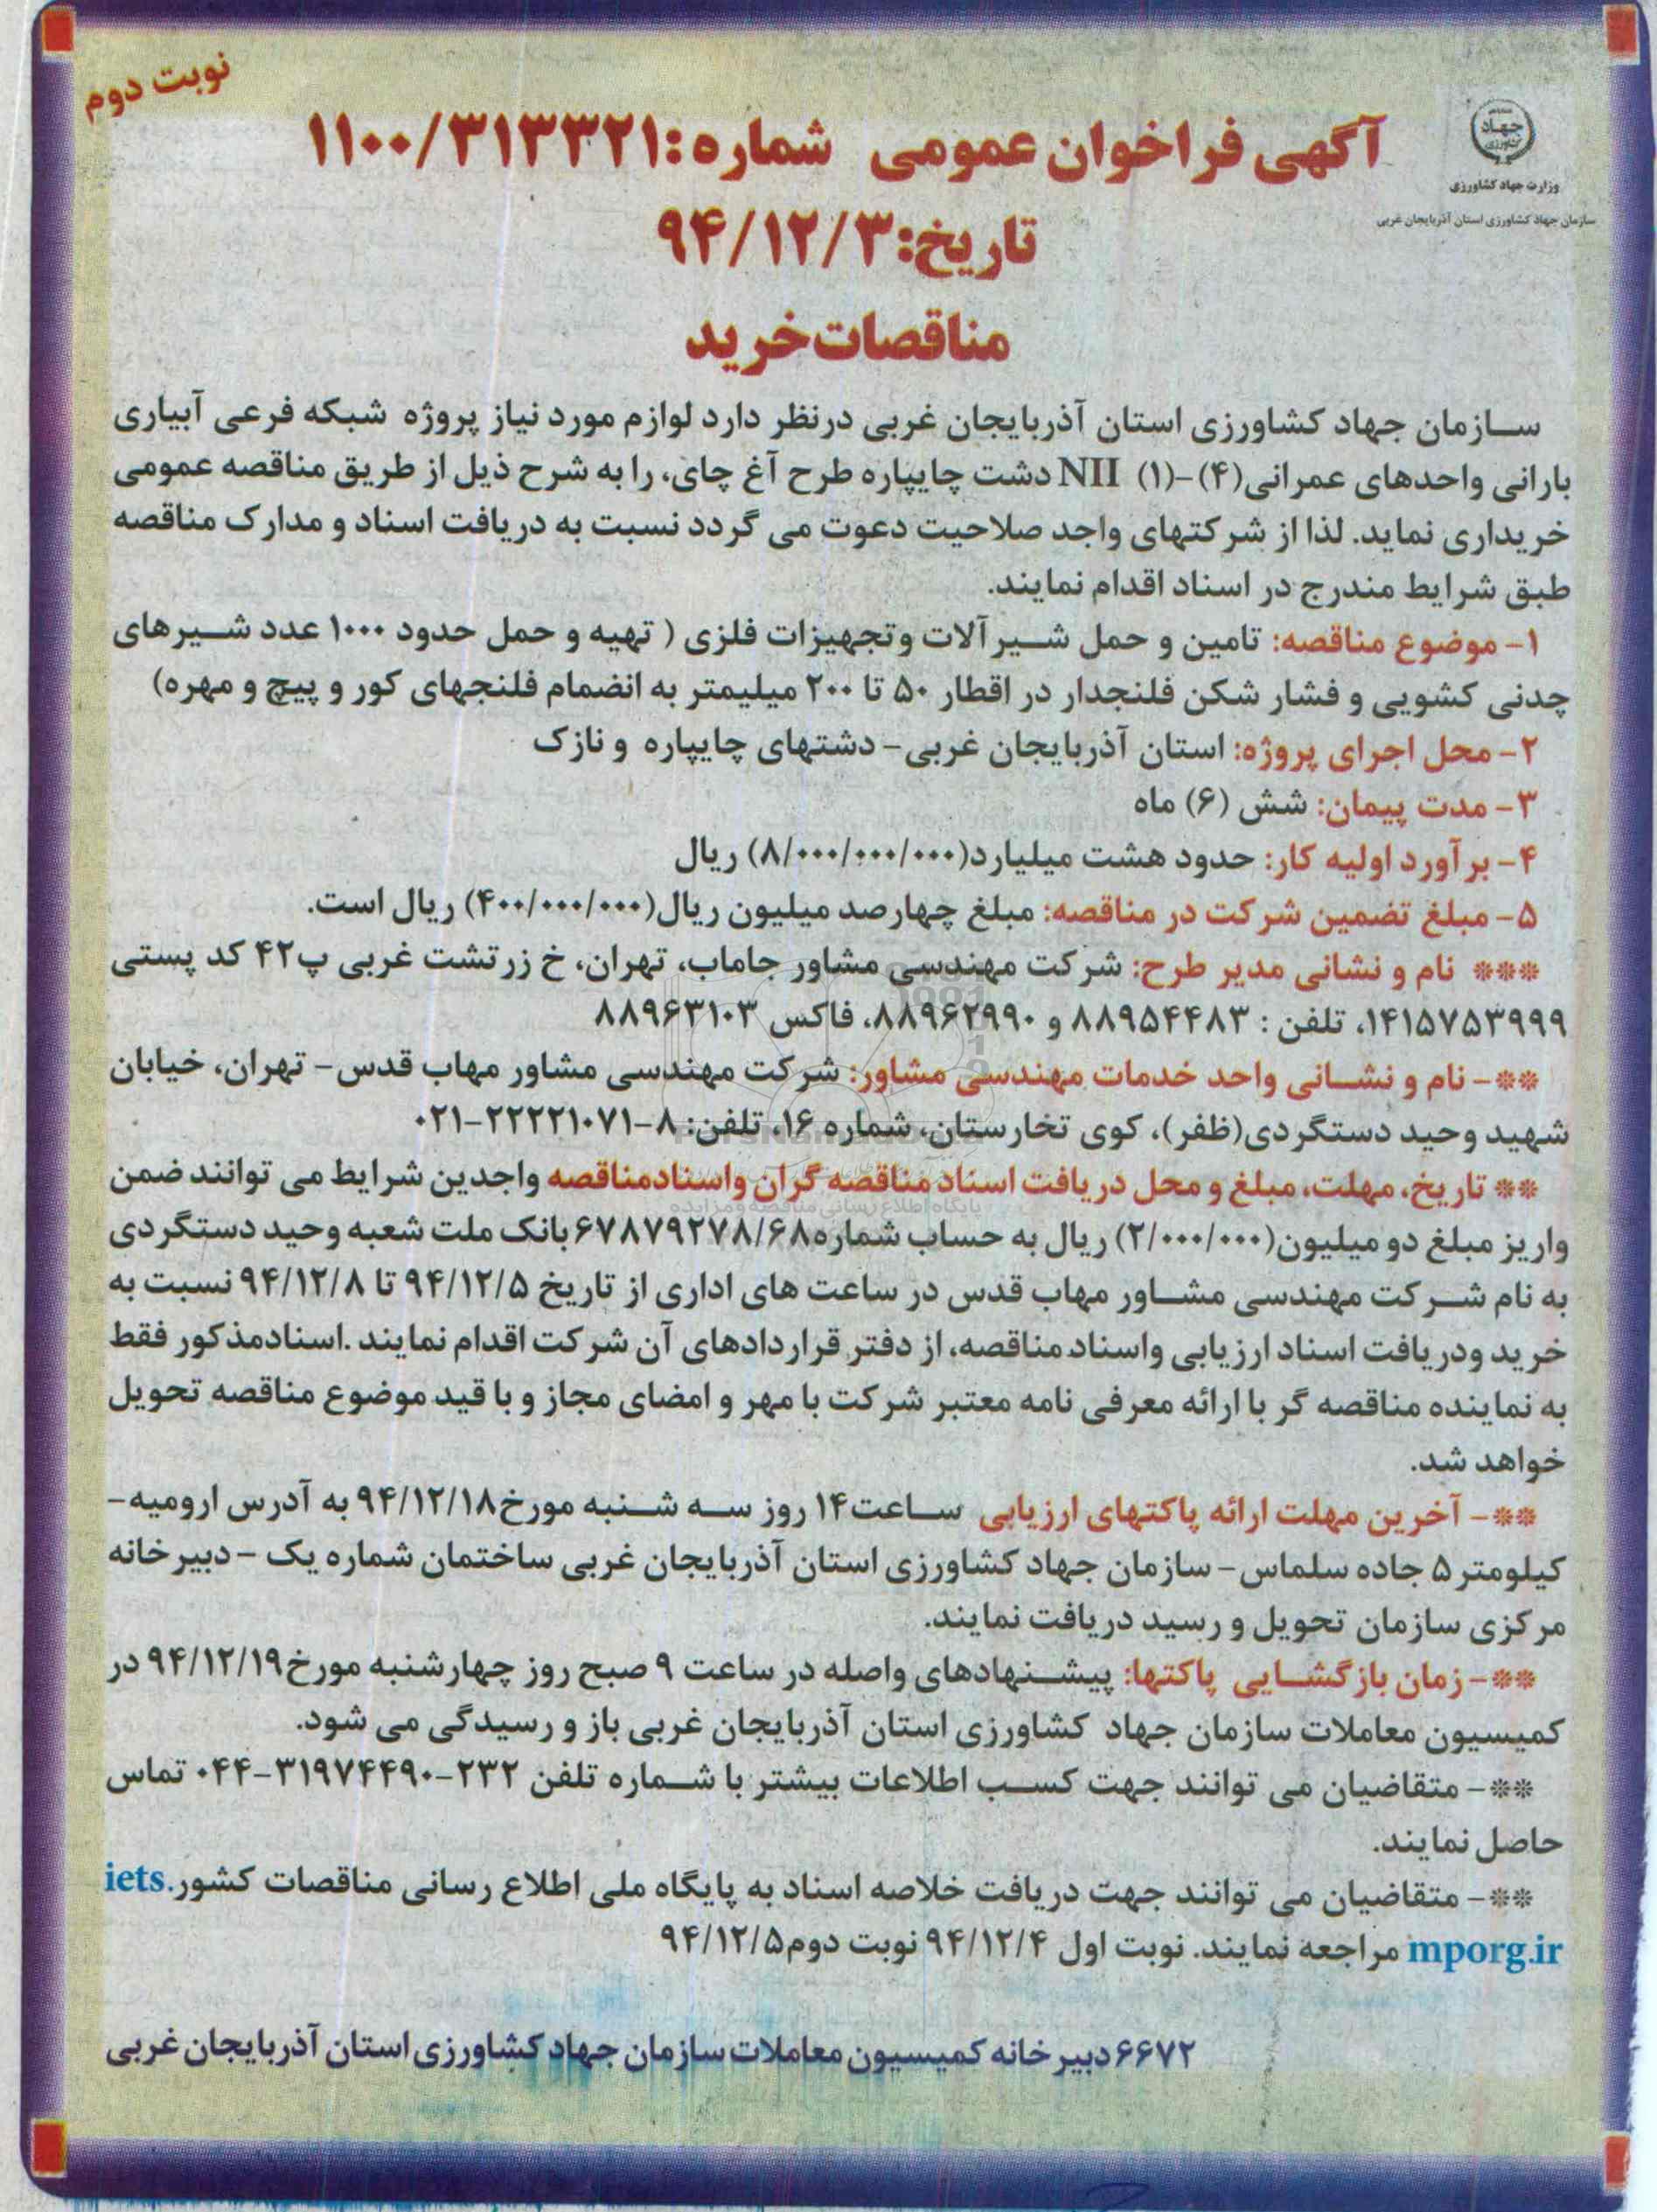 نوبت دوم
جهاد
وزارت جهاد کشاورزی
سازمان جهاد کشاورزی استان آذربایجان غربی
آگهی فراخوان عمومی شماره:۱۱۰۰/۳۱۳۳۲۱
تاریخ:۹۴/۱۲/۳
مناقصات خرید
سازمان جهاد کشاورزی استان آذربایجان غربی درنظر دارد لوازم مورد نیاز پروژه شبکه فرعی آبیاری
بارانی واحدهای عمرانی(۴)-(۱) NII دشت چایپاره طرح آغ چای، را به شرح ذیل از طریق مناقصه عمومی
خریداری نماید. لذا از شرکتهای واجد صلاحیت دعوت می گردد نسبت به دریافت اسناد و مدارک مناقصه
طبق شرایط مندرج در اسناد اقدام نمایند.
۱- موضوع مناقصه: تامین و حمل شیرآلات وتجهیزات فلزی ( تهیه و حمل حدود ۱۰۰۰ عدد شیرهای
چدنی کشویی و فشار شکن فلنجدار در اقطار ۵۰ تا ۲۰۰ میلیمتر به انضمام فلنجهای کور و پیچ و مهره)
۲- محل اجرای پروژه: استان آذربایجان غربی- دشتهای چایپاره و نازک
۳- مدت پیمان: شش (۶) ماه
۴- برآورد اولیه کار: حدود هشت میلیارد(۸/۰۰۰/۰۰۰/۰۰۰) ریال
۵- مبلغ تضمین شرکت در مناقصه: مبلغ چهارصد میلیون ریال(۴۰۰/۰۰۰/۰۰۰) ریال است.
*** نام و نشانی مدیر طرح: شرکت مهندسی مشاور جاماب، تهران، خ زرتشت غربی پ۴۲ کد پستی
۱۴۱۵۷۵۳۹۹۹، تلفن : ۸۸۹۵۴۴۸۳ و ۸۸۹۶۲۹۹۰، فاکس ۸۸۹۶۳۱۰۳
**- نام و نشانی واحد خدمات مهندسی مشاور: شرکت مهندسی مشاور مهاب قدس- تهران، خیابان
شهید وحید دستگردی(ظفر)، کوی تخارستان، شماره ۱۶، تلفن: ۸-۲۲۲۲۱۰۷۱-۰۲۱
** تاریخ، مهلت، مبلغ و محل دریافت اسناد مناقصه گران واسنادمناقصه واجدین شرایط می توانند ضمن
پایگاه اطلاع رسانی مناقصه و مزایده
واریز مبلغ دو میلیون(۲/۰۰۰/۰۰۰) ریال به حساب شماره۶۷۸۷۹۲۷۸/۶۸بانک ملت شعبه وحید دستگردی
به نام شرکت مهندسی مشاور مهاب قدس در ساعت های اداری از تاریخ ۹۴/۱۲/۵ تا ۹۴/۱۲/۸ نسبت به
خرید ودریافت اسناد ارزیابی واسناد مناقصه، از دفتر قراردادهای آن شرکت اقدام نمایند .اسنادمذکور فقط
به نماینده مناقصه گر با ارائه معرفی نامه معتبر شرکت با مهر و امضای مجاز و با قید موضوع مناقصه تحویل
خواهد شد.
**- آخرین مهلت ارائه پاکتهای ارزیابی ساعت۱۴ روز سه شنبه مورخ۹۴/۱۲/۱۸ به آدرس ارومیه-
کیلومتر ۵ جاده سلماس- سازمان جهاد کشاورزی استان آذربایجان غربی ساختمان شماره یک - دبیرخانه
مرکزی سازمان تحویل و رسید دریافت نمایند.
**- زمان بازگشایی پاکتها: پیشنهادهای واصله در ساعت ۹ صبح روز چهارشنبه مورخ۹۴/۱۲/۱۹ در
کمیسیون معاملات سازمان جهاد کشاورزی استان آذربایجان غربی باز و رسیدگی می شود.
**- متقاضیان می توانند جهت کسب اطلاعات بیشتر با شماره تلفن ۲۳۲-۳۱۹۷۴۴۹۰-۰۴۴ تماس
حاصل نمایند.
**- متقاضیان می توانند جهت دریافت خلاصه اسناد به پایگاه ملی اطلاع رسانی مناقصات کشور.iets
mporg.ir مراجعه نمایند. نوبت اول ۹۴/۱۲/۴ نوبت دوم۹۴/۱۲/۵
۶۶۷۲دبیرخانه کمیسیون معاملات سازمان جهاد کشاورزی استان آذربایجان غربی